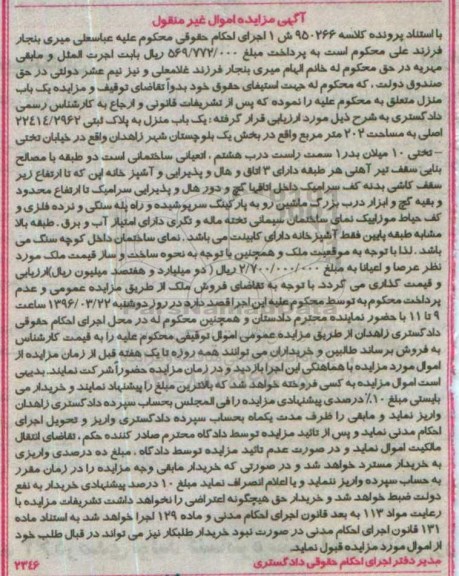 آگهی مزایده اموال غیر منقول
با استناد پرونده کلاسه ۹۵۰۲۶۶ ش ۱ اجرای احکام حقوقی محکوم علیه عباسعلی میری بنجار
فرزند علی محکوم است به پرداخت مبلغ ۵۶۹/۷۷۲/۰۰۰ ریال بابت اجرت المثل و مابقی
مهریه در حق محکوم له خانم الهام میری بنجار فرزند غلامعلی و نیز نیم عشر دولتی در حق
صندوق دولت ، که محکوم له جهت استیفای حقوق خود بدواً تقاضای توقیف و مزایده یک باب
منزل متعلق به محکوم علیه را نموده که پس از تشریفات قانونی و ارجاع به کارشناس رسمی
دادگستری به شرح ذیل مورد ارزیابی قرار گرفته؛ یک باب منزل به پلاک ثبتی ۲۲۴۱۴/۲۹۶۲
اصلی به مساحت ۲۰۲ متر مربع واقع در بخش یک بلوچستان شهر زاهدان واقع در خیابان تختی
- تختی ۱۰ میلان بدر۱ سمت راست درب هشتم ، اعیانی ساختمانی است دو طبقه با مصالح
بنایی سقف تیر آهنی هر طبقه دارای ۳ اتاق و هال و پذیرایی و آشپز خانه اپن که تا ارتفاع زیر
سقف کاشی بدنه کف سرامیک داخل اتاقها گچ و دور هال و پذیرایی سرامیک تا ارتفاع محدود
و بقیه گچ و ابزار درب بزرگ ماشین رو به پارکینگ سرپوشیده و راه پله سنگی و نرده فلزی و
کف حیاط موزاییک نمای ساختمان سیمانی تخته ماله و نگری دارای امتیاز آب و برق . طبقه بالا
مشابه طبقه پایین فقط آشپزخانه دارای کابینت می باشد . نمای ساختمان داخل کوچه سنگ می
باشد . لذا با توجه به موقعیت ملک و همچنین با توجه به نحوه ساخت و ساز قیمت ملک مورد
نظر عرصا و اعیانا به مبلغ ۲/۷۰۰/۰۰۰/۰۰۰ ریال ( دو میلیارد و هفتصد میلیون ریال)ارزیابی
و قیمت گذاری می گردد. با توجه به تقاضای فروش ملک از طریق مزایده عمومی و عدم
پرداخت محکوم به توسط محکوم علیه این اجرا قصد دارد در روز دوشنبه ۱۳۹۶/۰۳/۲۲ ساعت
۹ تا ۱۱ با حضور نماینده محترم دادستان و همچنین محکوم له در محل اجرای احکام حقوقی
دادگستری زاهدان از طریق مزایده عمومی اموال توقیفی محکوم علیه را به قیمت کارشناس
به فروش برساند طالبین و خریداران می توانند همه روزه تا یک هفته قبل از زمان مزایده از
اموال مورد مزایده با هماهنگی این اجرا بازدید و در زمان مزایده حضوراً شرکت نمایند. بدیهی
است اموال مزایده به کسی فروخته خواهد شد که بالاترین مبلغ را پیشنهاد نمایند و خریدار می
بایستی مبلغ ۱۰٪ درصدی پیشنهادی مزایده را فی المجلس بحساب سپرده دادگستری زاهدان
واریز نماید و مابقی را ظرف مدت یکماه بحساب سپرده دادگستری واریز و تحویل اجرای
احکام مدنی نماید و پس از تائید مزایده توسط دادگاه محترم صادر کننده حکم ، تقاضای انتقال
مالکیت اموال نماید و در صورت عدم تائید مزایده توسط دادگاه ، مبلغ ده درصدی واریزی
به خریدار مسترد خواهد شد و در صورتی که خریدار مابقی وجه مزایده را در زمان مقرر
به حساب سپرده واریز ننماید و یا اعلام انصراف نماید مبلغ ۱۰ درصد پیشنهادی خریدار به نفع
دولت ضبط خواهد شد و خریدار حق هیچگونه اعتراضی را نخواهد داشت تشریفات مزایده با
رعایت مواد ۱۱۳ به بعد قانون اجرای احکام مدنی و ماده ۱۲۹ اجرا خواهد شد به استناد ماده
۱۳۱ قانون اجرای احکام مدنی در صورت نبود خریدار طلبکار نیز می تواند در قبال طلب خود
از اموال مورد مزایده قبول نماید.
مدیر دفتر اجرای احکام حقوقی دادگستری
۲۳۴۶